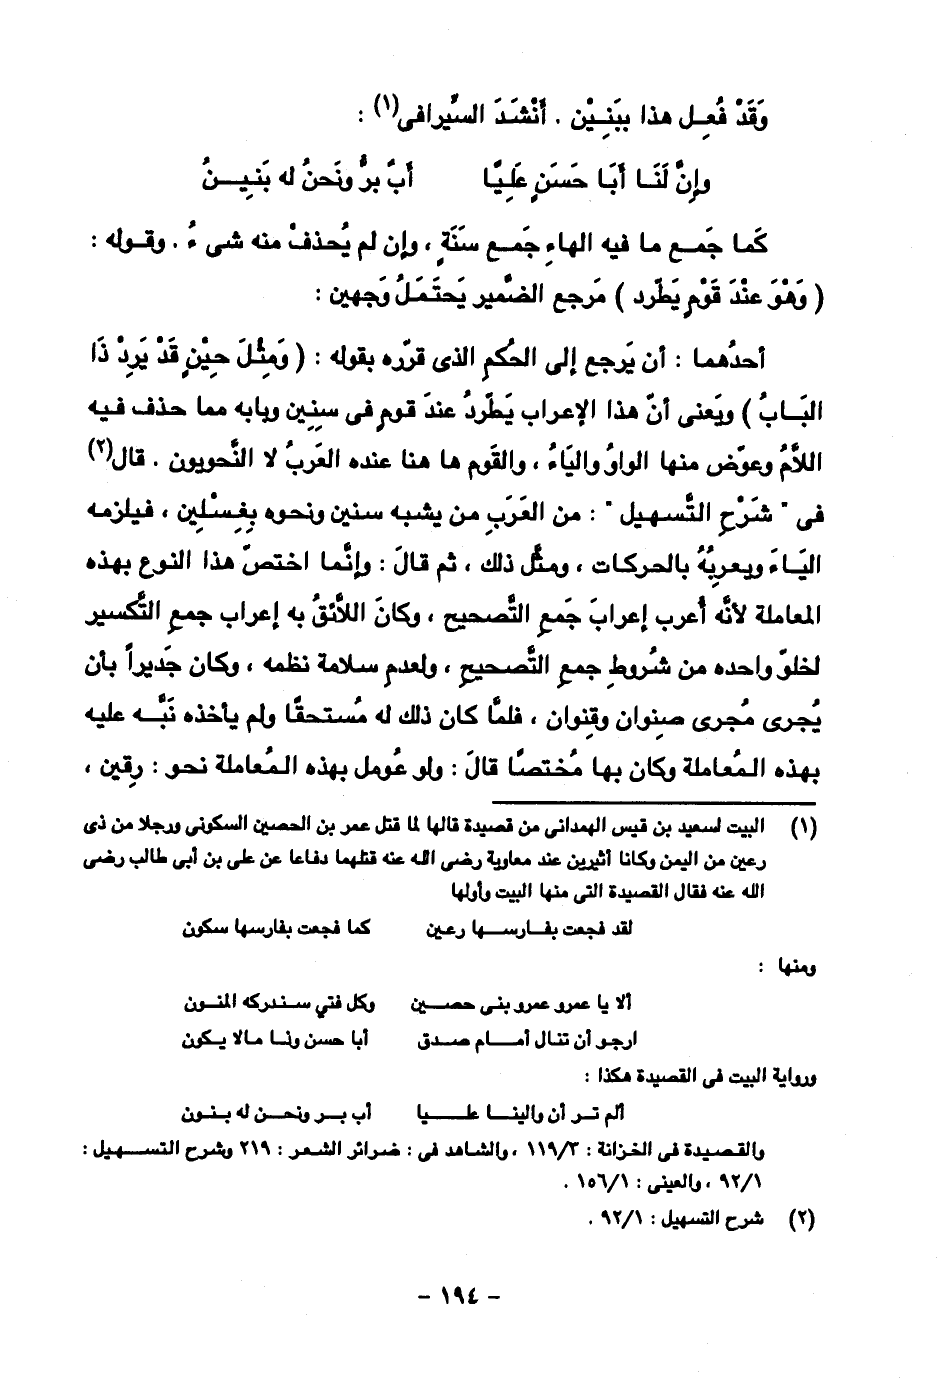 وَقَدْ فُعِل هذا ببَنِيْن . أنْشَدَ السِّيرافى(١) :
وإنَّ لَنَا أبَا حَسَنٍ عَلِيًّا أبٌ برٌّ ونَحنُ له بَنِينُ
كَما جَمع ما فيه الهاء جَمع سنَةٍ ، وإن لم يُحذفْ منه شىءُ . وقوله :
( وَهْوَ عنْدَ قَوْمٍ يَطّرد ) مَرجع الضمير يَحتَملُ وَجهين :
أحدُهما : أن يَرجع إلى الحُكمِ الذى قرّره بقوله : ( وَمِثْلَ حِيْنٍ قَدْ يَرِدْ ذَا
البَابُ ) ويَعنى أنّ هذا الإعراب يَطّردُ عندَ قومٍ فى سنِين وبابه مما حذف فيه
اللاَّمُ وعوّض منها الواوُ والياءُ ، والقوم ها هنا عنده العَربُ لا النَّحويون . قال(٢)
فى " شَرْحِ التَّسهيل " : من العَرَبِ من يشبه سنين ونحوه بِغِسْلين ، فيلزمه
اليَاءَ ويعربُهُ بالحركات ، ومثُل ذلك ، ثم قالَ : وإنَّما اختصّ هذا النوع بهذه
المعاملة لأنَّه أُعرب إعرابَ جَمعِ التَّصحيح ، وكانَ اللاَّئقُ به إعراب جمعِ التَّكسير
لخلوّ واحده من شُروطِ جمعِ التَّصحيحِ ، ولعدمِ سلامة نظمه ، وكان جَديراً بأن
يُجرى مُجرى صِنوان وقِنوان ، فلمَّا كان ذلك له مُستحقًّا ولم يأخذه نَبَّه عليه
بهذه المُعاملة وكان بها مُختصًّا قالَ : ولو عُومل بهذه المُعاملة نحو : رِقين ،
(١) البيت لسعيد بن قيس الهمدانى من قصيدة قالها لما قتل عمر بن الحصين السكونى ورجلا من ذى
رعين من اليمن وكانا أثيرين عند معاوية رضى الله عنه قتلهما دفاعا عن على بن أبى طالب رضى
الله عنه فقال القصيدة التى منها البيت وأولها
لقد فجعت بفارسها رعين كما فجعت بفارسها سكون
ومنها :
ألا يا عمرو عمرو بنى حصين وكل فتي ستدركه المنون
ارجو أن تنال أمام صدق أبا حسن وذا مالا يكون
ورواية البيت فى القصيدة هكذا :
ألم تر أن والينا عليا أب بر ونحن له بنون
والقصيدة فى الخزانة : ١١٩/٣ ، والشاهد فى : ضرائر الشعر : ٢١٩ وشرح التسهيل :
٩٢/١ ، والعينى : ١٥٦/١ .
(٢) شرح التسهيل : ٩٢/١ .
- ١٩٤ -